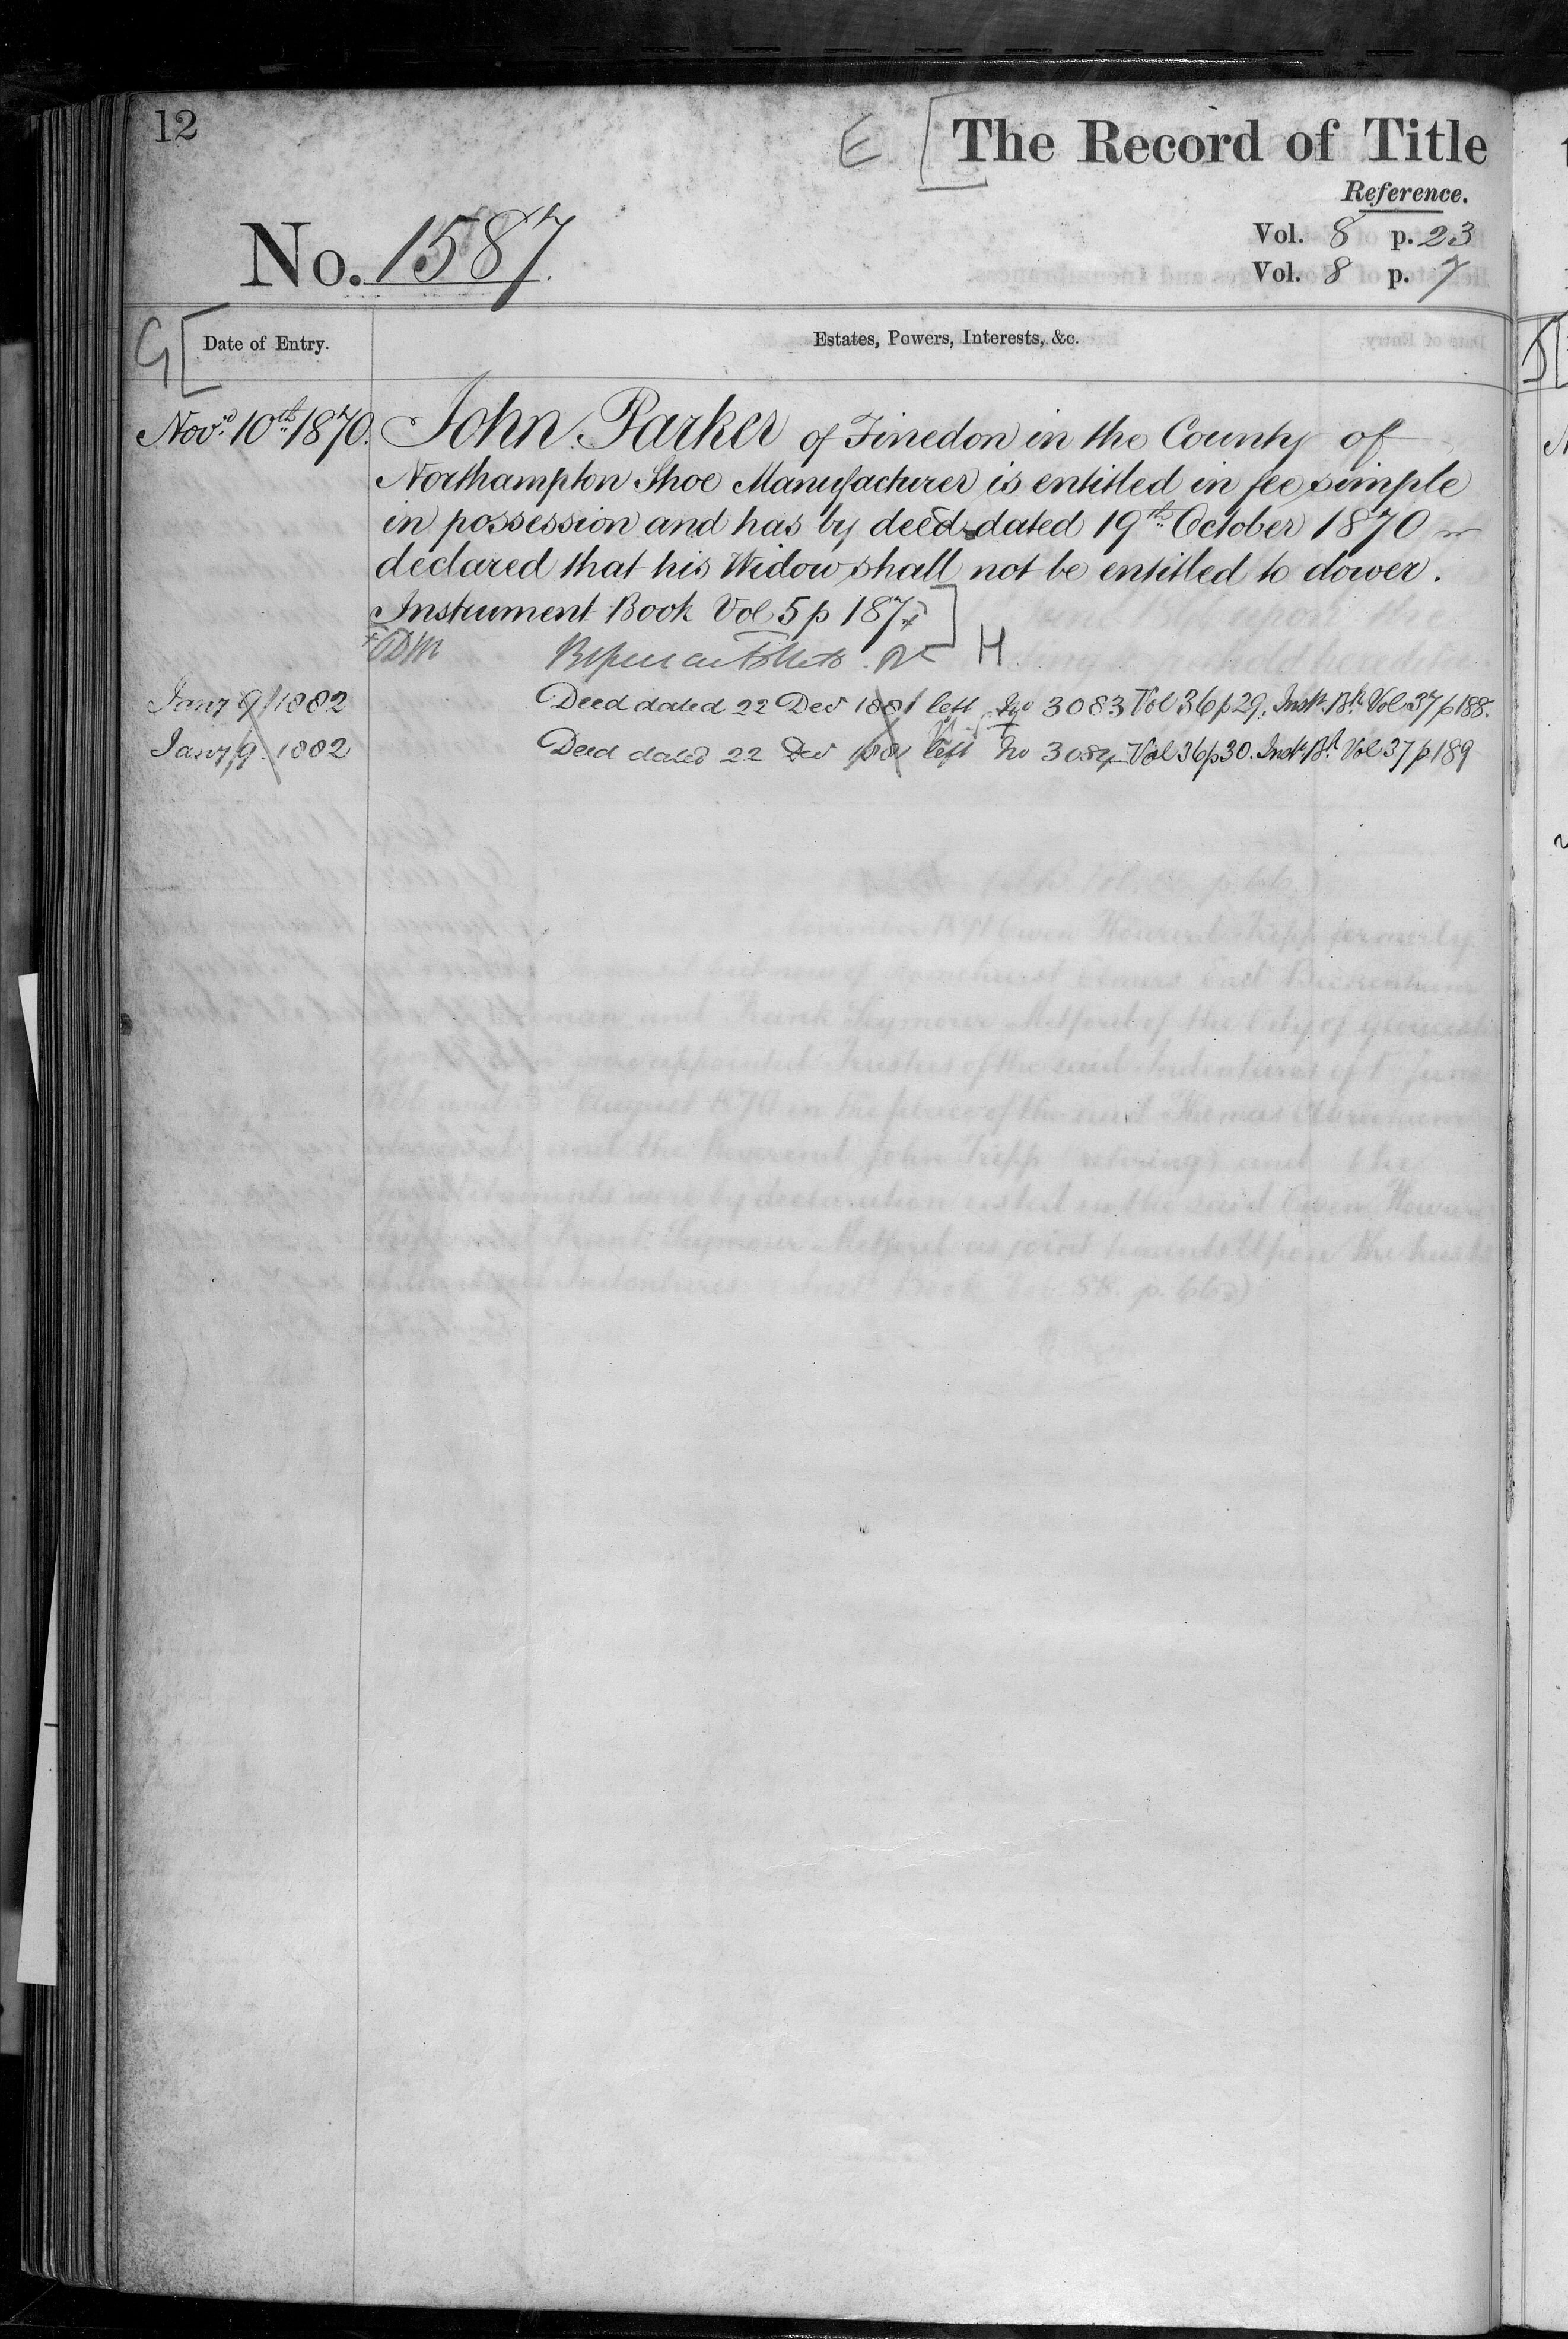 12
E [ The Record of Title
Reference.
No. 1587.
Vol. 8 p. 23
Vol. 8 p. 7
G [ Date of Entry.
Estates, Powers, Interests, &c.
Nov.r 10th 1870. John Parker of Finedon in the County of
Northampton Shoe Manufacturer is entitled in fee simple
in possession and has by deed dated 19th October 1870
declared that his Widow shall not be entitled to dower.
Instrument Book Vol 5 p 187 ]
H
Jany 9 1882 Deed dated 22 Dec 1881 left No 3083 Vol 36 p 29. Instt. Bk. Vol 37 p 188.
Jany 9 1882 Deed dated 22 Dec 1881 left No 3084 Vol 36 p 30. Instt Bk. Vol 37 p 189